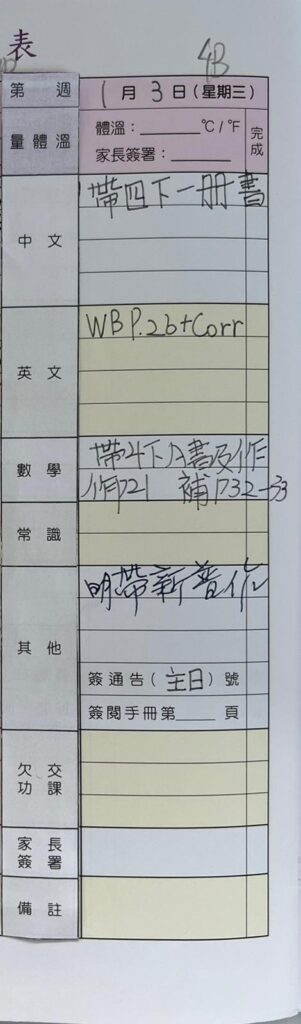 表
4B
第 週 1月3日(星期三)
量體溫 體溫：______ °C / °F 完成
家長簽署：______
中文 帶四下一冊書
英文 WB P.26+Corr
數學 帶4下A書及作
作P21 補P32-33
常識
其他 明帶新普作
簽通告(主日)號
簽閱手冊第____頁
欠交功課
家長簽署
備註